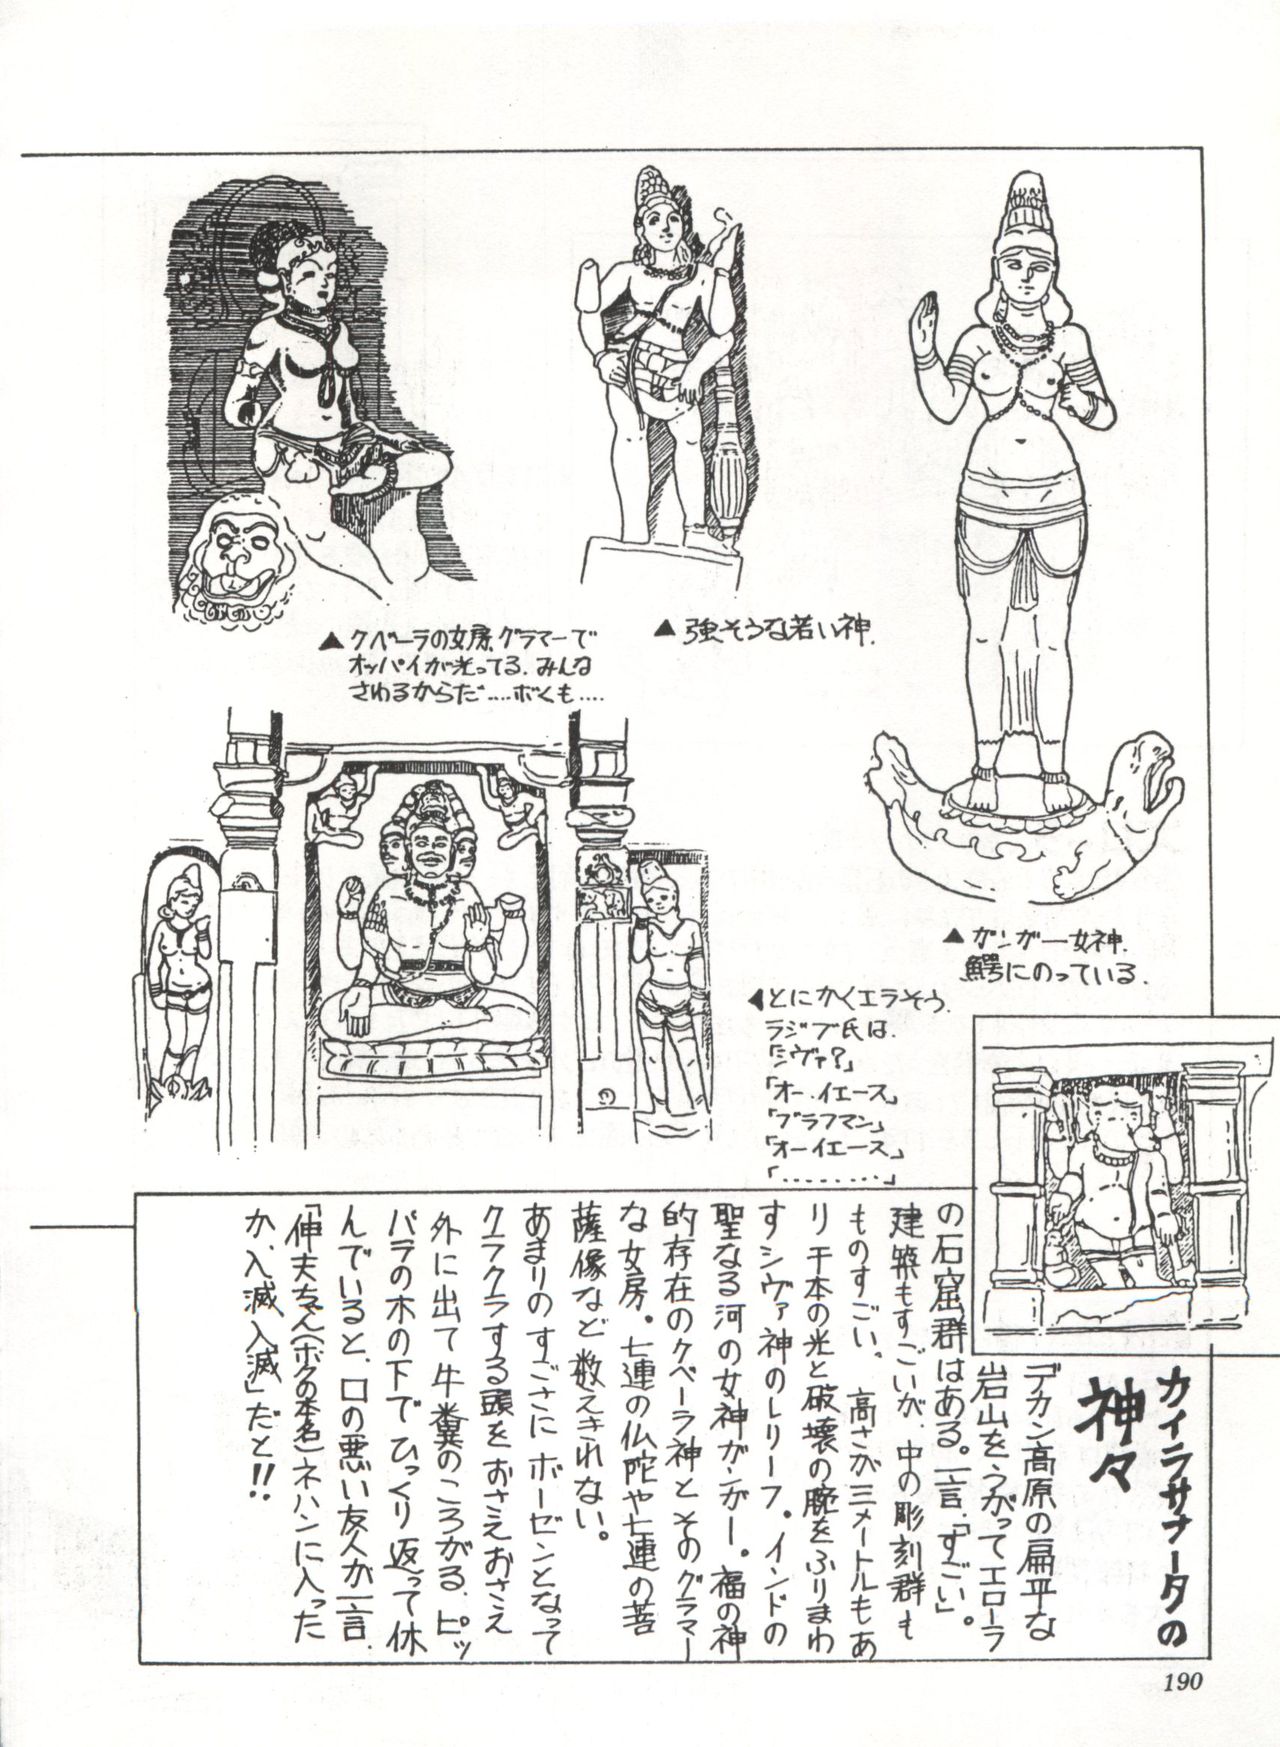 ▲クベーラの女房、グラマーで
オッパイが光ってる、みんな
さわるからだ……ボくも……
▲強そうな若い神.
▲ガンガー女神.
鰐にのっている.
◀とにかくエラそう.
ラジブ氏は.
「シヴァ?」
「オー.イエース」
「ブラフマン」
「オーイエース」
「………」
カイラサナータの
神々
デカン高原の扁平な
岩山をうがってエローラ
の石窟群はある。一言、「すごい」。
建築もすごいが、中の彫刻群も
ものすごい。高さが三メートルもあ
り千本の光と破壊の腕をふりまわ
すシヴァ神のレリーフ。インドの
聖なる河の女神ガンガー。福の神
的存在のクベーラ神とそのグラマー
な女房。七連の仏陀や七連の菩
薩像など数えきれない。
あまりのすごさにボーゼンとなって
クラクラする頭をおさえおさえ
外に出て牛糞のころがる、ピッ
パラの木の下でひっくり返って休
んでいると、口の悪い友人が一言、
「伸夫ちゃん(ボクの本名)ネハンに入った
か、入滅、入滅」だと!!
190